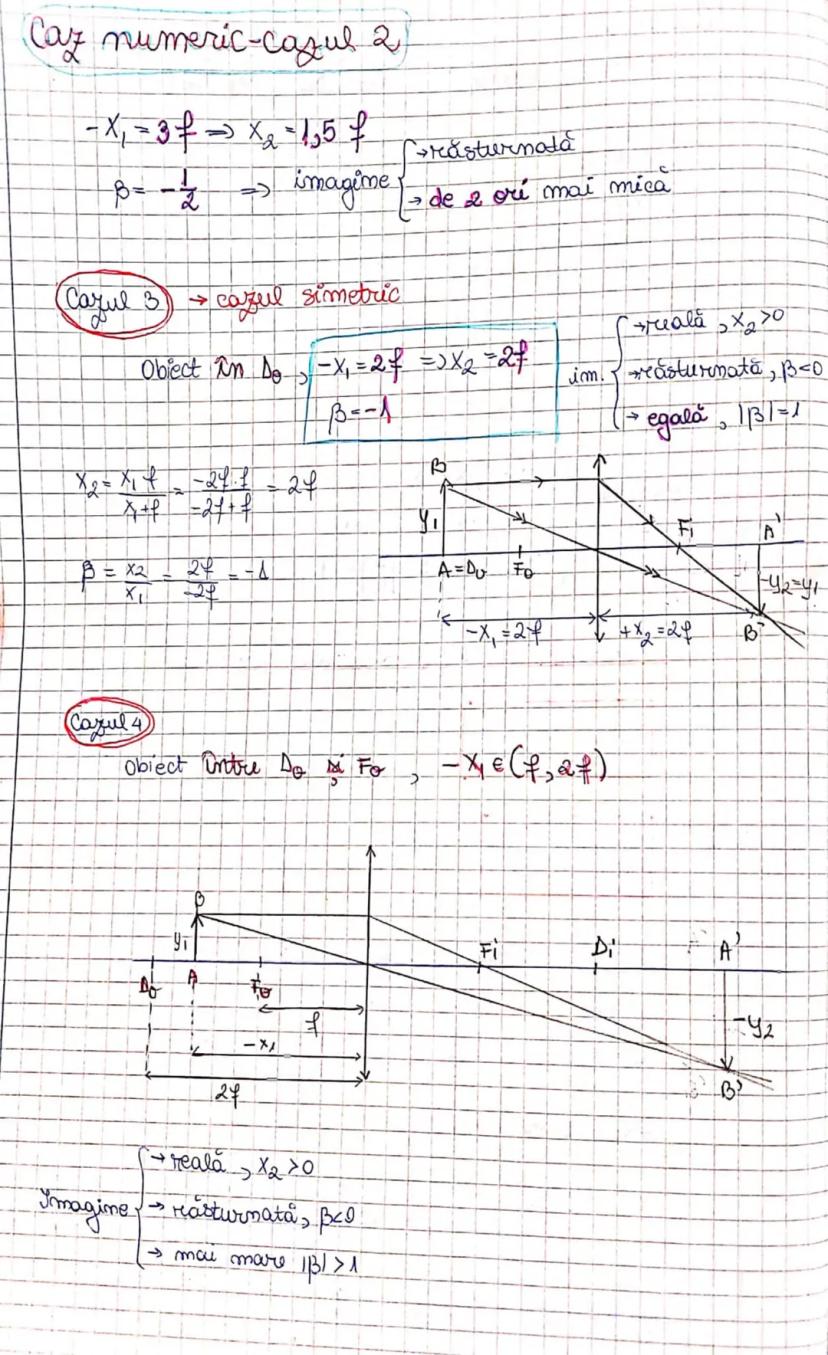 Caz numeric-cazul 2
-x₁ = 3f => x₂ = 1,5 f
β = -1/2 => imagine { → răsturnată
→ de 2 ori mai mică
Cazul 3 → cazul simetric
Obiect în D₀, -x₁ = 2f => x₂ = 2f
β = -1
im. { → reală, x₂ > 0
→ răsturnată, β < 0
→ egală, |β| = 1
x₂ = x₁f / x₁+f = -2f·f / -2f+f = 2f
β = x₂/x₁ = 2f/-2f = -1
B
y₁
A = D₀ F₀ Fi A'
-y₂ = y₁
-x₁ = 2f +x₂ = 2f B'
Cazul 4
Obiect între D₀ și F₀, -x₁ ∈ (f, 2f)
B
y₁ Fi Di A'
D₀ A F₀
f -y₂
-x₁
2f B'
Imagine { → reală, x₂ > 0
→ răsturnată, β < 0
→ mai mare |β| > 1